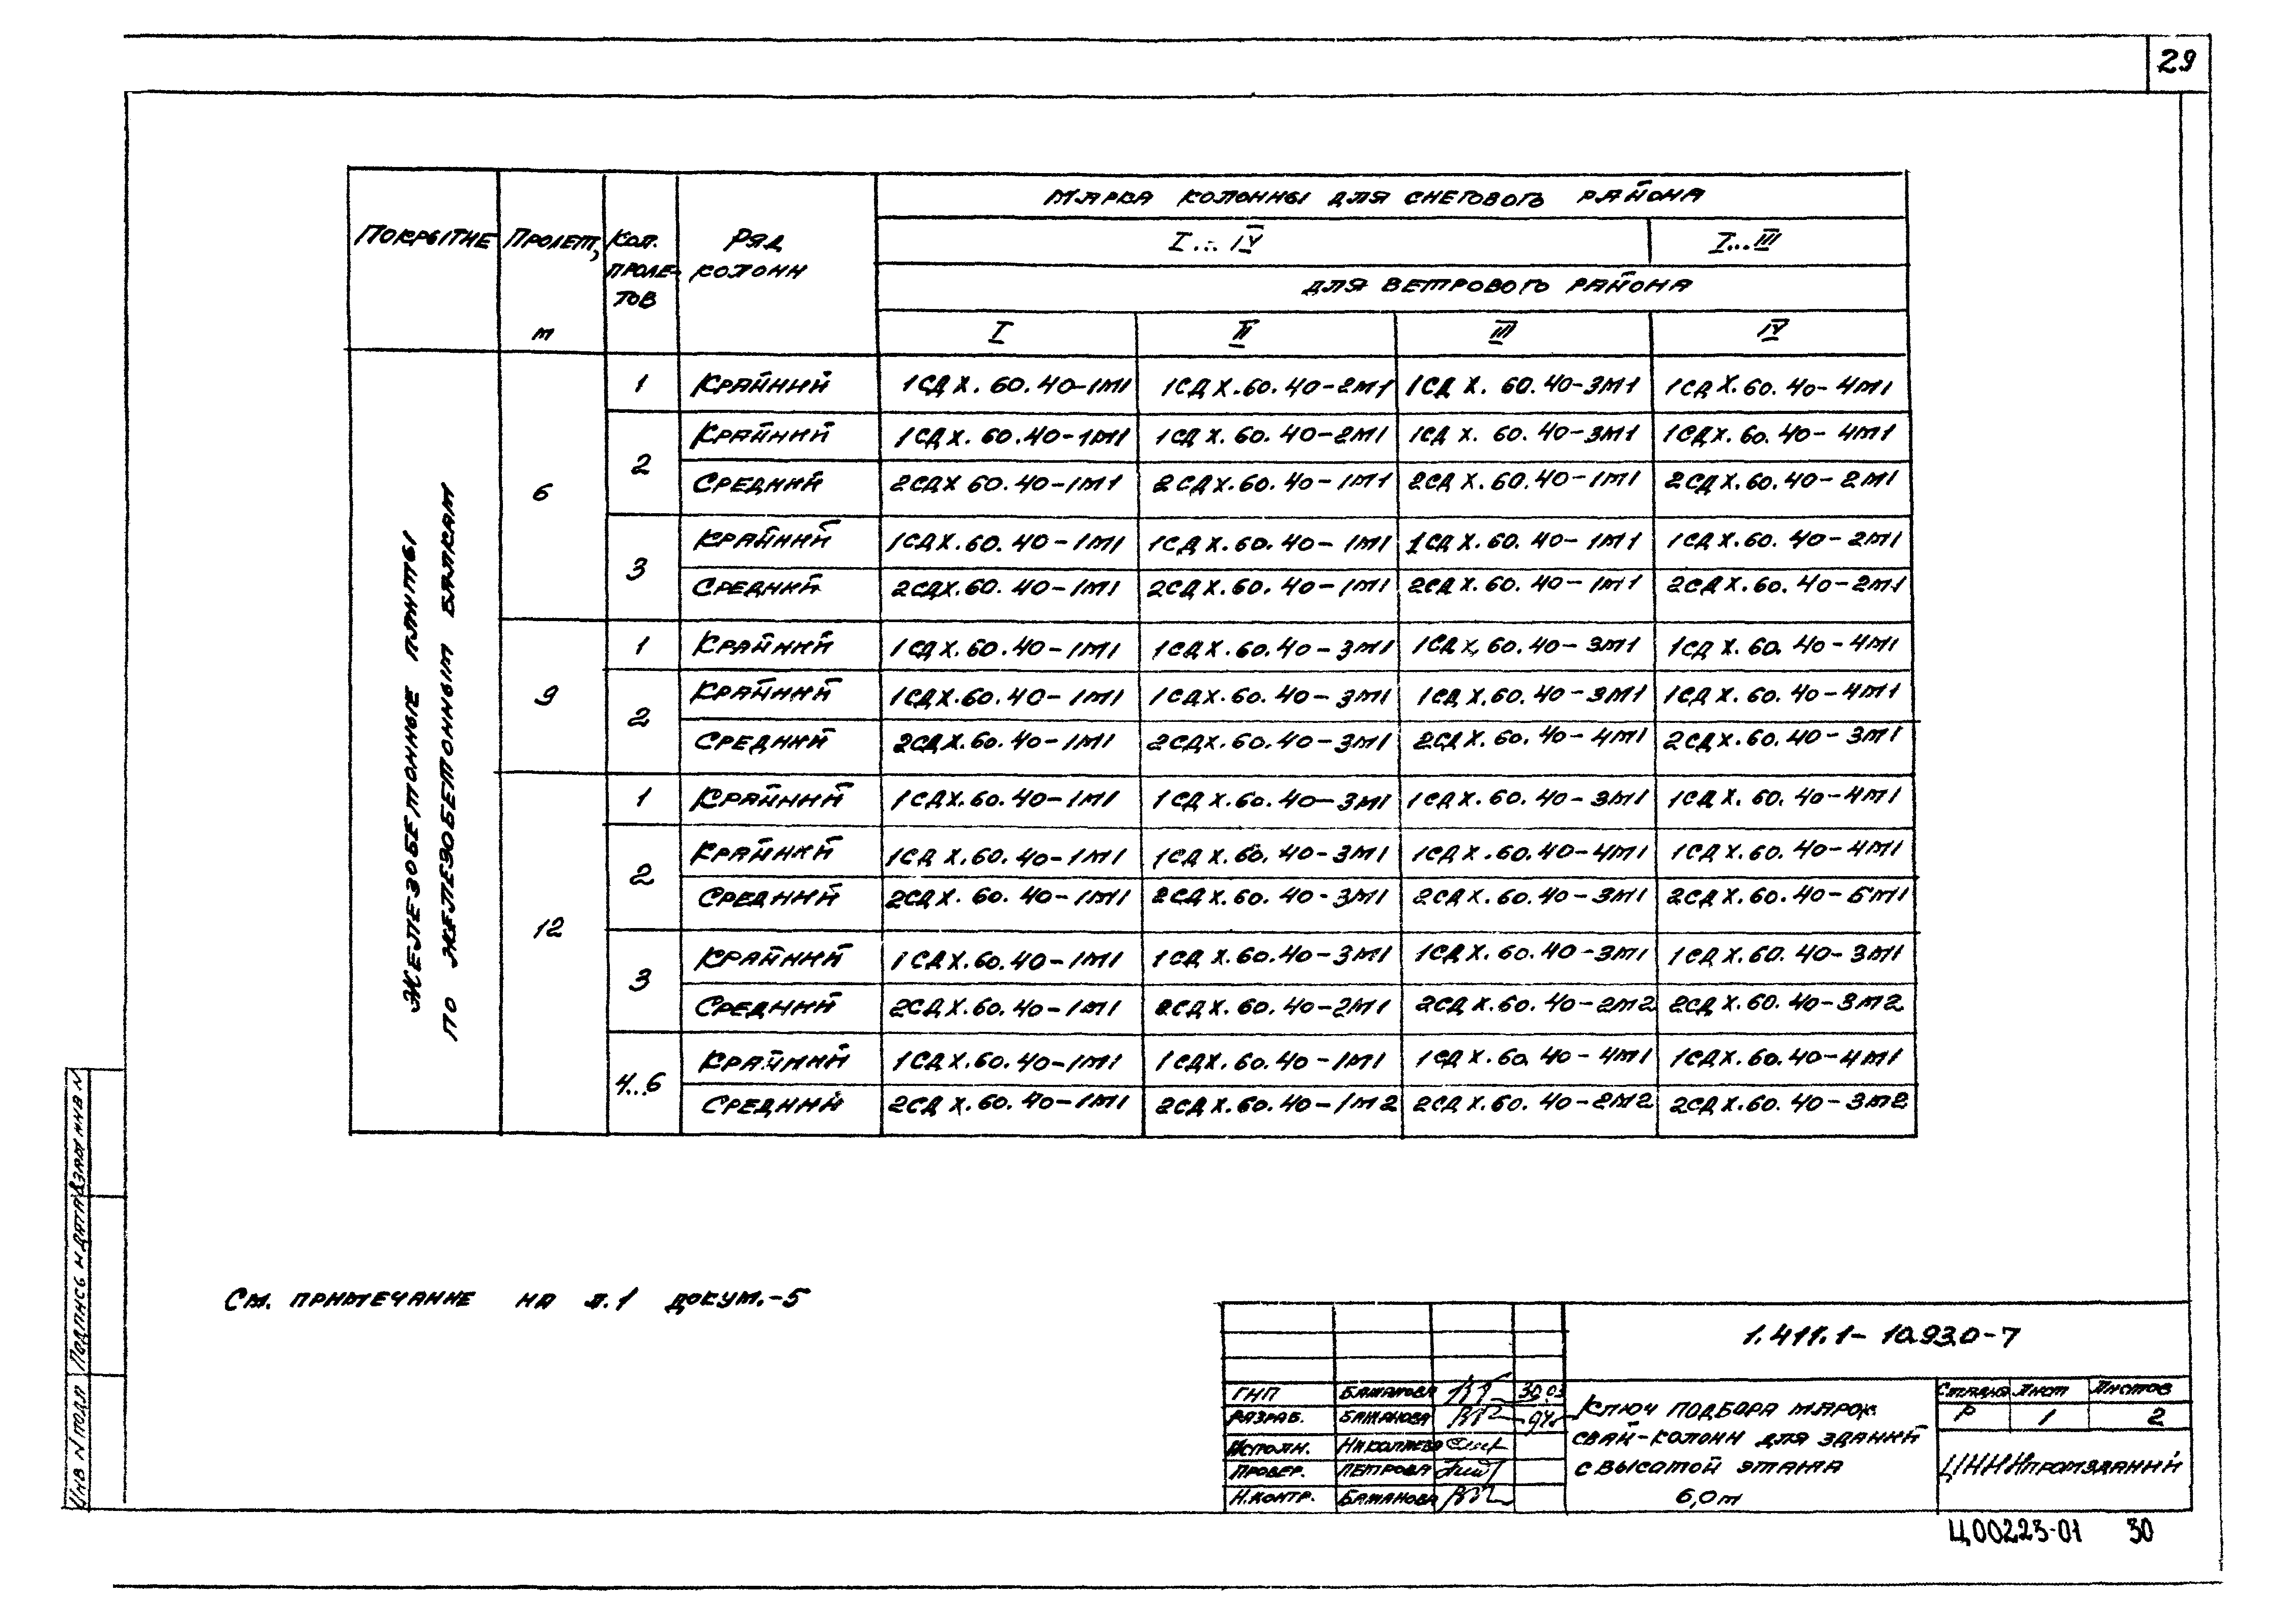 29
Марка колонны для снегового района
Покрытие Пролет, м Кол. проле- тов Ряд колонн
I...IV I...III
для ветрового района
I II III IV
Железобетонные плиты
по железобетонным балкам
6
1 Крайний 1СДХ.60.40-1М1 1СДХ.60.40-2М1 1СДХ.60.40-3М1 1СДХ.60.40-4М1
2 Крайний 1СДХ.60.40-1М1 1СДХ.60.40-2М1 1СДХ.60.40-3М1 1СДХ.60.40-4М1
Средний 2СДХ 60.40-1М1 2СДХ.60.40-1М1 2СДХ.60.40-1М1 2СДХ.60.40-2М1
3 Крайний 1СДХ.60.40-1М1 1СДХ.60.40-1М1 1СДХ.60.40-1М1 1СДХ.60.40-2М1
Средний 2СДХ.60.40-1М1 2СДХ.60.40-1М1 2СДХ.60.40-1М1 2СДХ.60.40-2М1
9
1 Крайний 1СДХ.60.40-1М1 1СДХ.60.40-3М1 1СДХ.60.40-3М1 1СДХ.60.40-4М1
2 Крайний 1СДХ.60.40-1М1 1СДХ.60.40-3М1 1СДХ.60.40-3М1 1СДХ.60.40-4М1
Средний 2СДХ.60.40-1М1 2СДХ.60.40-3М1 2СДХ.60.40-4М1 2СДХ.60.40-3М1
12
1 Крайний 1СДХ.60.40-1М1 1СДХ.60.40-3М1 1СДХ.60.40-3М1 1СДХ.60.40-4М1
2 Крайний 1СДХ.60.40-1М1 1СДХ.60.40-3М1 1СДХ.60.40-4М1 1СДХ.60.40-4М1
Средний 2СДХ.60.40-1М1 2СДХ.60.40-3М1 2СДХ.60.40-3М1 2СДХ.60.40-5М1
3 Крайний 1СДХ.60.40-1М1 1СДХ.60.40-3М1 1СДХ.60.40-3М1 1СДХ.60.40-3М1
Средний 2СДХ.60.40-1М1 2СДХ.60.40-2М1 2СДХ.60.40-2М2 2СДХ.60.40-3М2
4..6 Крайний 1СДХ.60.40-1М1 1СДХ.60.40-1М1 1СДХ.60.40-4М1 1СДХ.60.40-4М1
Средний 2СДХ.60.40-1М1 2СДХ.60.40-1М2 2СДХ.60.40-2М2 2СДХ.60.40-3М2
См. примечание на л.1 докум.-5
Инв N подл Подпись и дата Взам инв N
1.411.1-10.93.0-7
ГИП Бажанова 30.03
Разраб. Бажанова 94г
Исполн. Николаева
Провер. Петрова
Н.контр. Бажанова
Ключ подбора марок
свай-колонн для зданий
с высотой этажа
6,0м
Стадия Лист Листов
Р 1 2
ЦНИИпромзданий
Ц00223-01 30